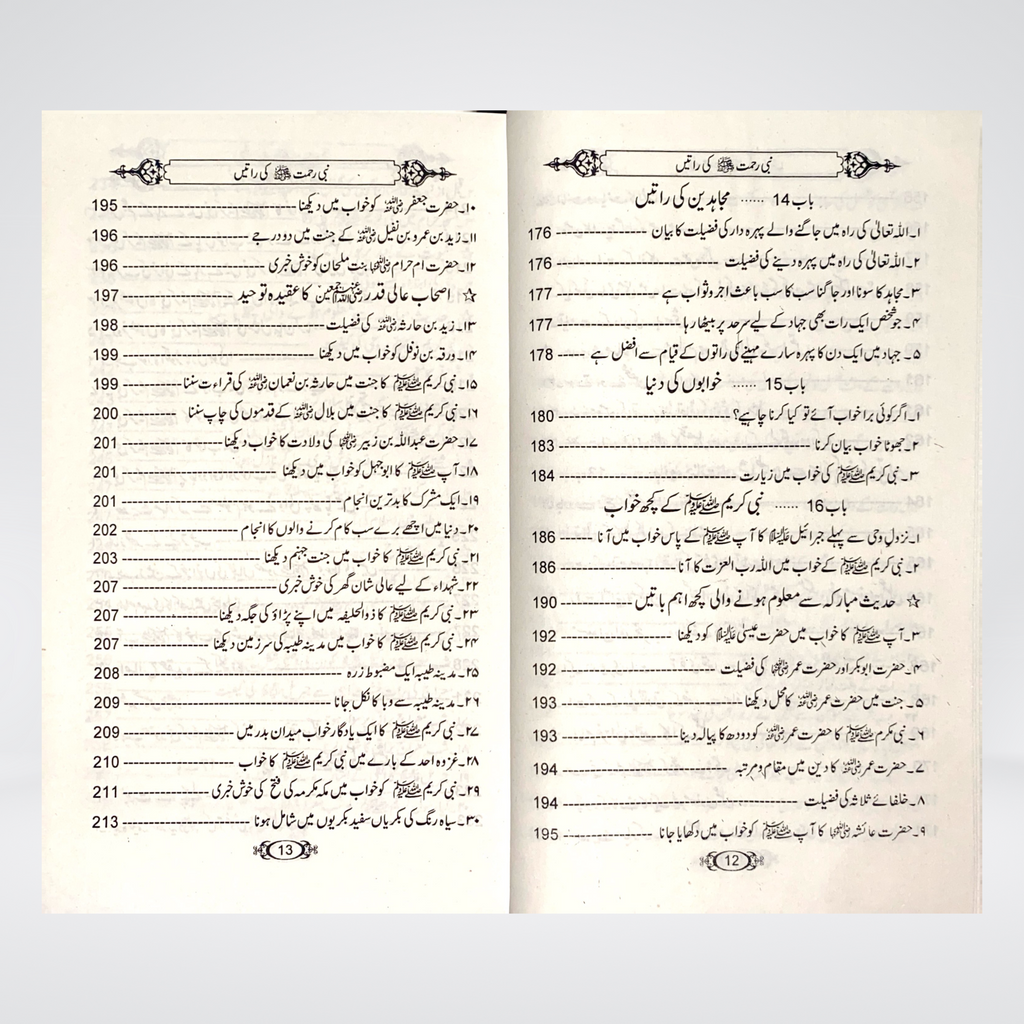 نبی رحمت ﷺ کی راتیں
باب 14 ...... مجاہدین کی راتیں
۱۔ اللہ تعالیٰ کی راہ میں جاگنے والے پہرہ دار کی فضیلت کا بیان ---------- 176
۲۔ اللہ تعالیٰ کی راہ میں پہرہ دینے کی فضیلت ---------- 176
۳۔ مجاہد کا سونا اور جاگنا سب کا سب باعث اجر و ثواب ہے ---------- 177
۴۔ جو شخص ایک رات بھی جہاد کے لیے سرحد پر بیٹھا رہا ---------- 177
۵۔ جہاد میں ایک دن کا پہرہ سارے مہینے کی راتوں کے قیام سے افضل ہے ----- 178
باب 15 ...... خوابوں کی دنیا
۱۔ اگر کوئی برا خواب آئے تو کیا کرنا چاہیے؟ ---------- 180
۲۔ جھوٹا خواب بیان کرنا ---------- 183
۳۔ نبی کریم ﷺ کی خواب میں زیارت ---------- 184
باب 16 ...... نبی کریم ﷺ کے کچھ خواب
۱۔ نزول وحی سے پہلے جبرائیل علیہ السلام کا آپ ﷺ کے پاس خواب میں آنا ---------- 186
۲۔ نبی کریم ﷺ کے خواب میں اللہ رب العزت کا آنا ---------- 186
☆ حدیث مبارکہ سے معلوم ہونے والی کچھ اہم باتیں ---------- 190
۳۔ آپ ﷺ کا خواب میں حضرت عیسیٰ علیہ السلام کو دیکھنا ---------- 192
۴۔ حضرت ابوبکر اور حضرت عمر رضی اللہ عنہما کی فضیلت ---------- 192
۵۔ جنت میں حضرت عمر رضی اللہ عنہ کا محل دیکھنا ---------- 193
۶۔ نبی مکرم ﷺ کا حضرت عمر رضی اللہ عنہ کو دودھ کا پیالہ دینا ---------- 193
۷۔ حضرت عمر رضی اللہ عنہ کا دین میں مقام و مرتبہ ---------- 194
۸۔ خلفائے ثلاثہ کی فضیلت ---------- 194
۹۔ حضرت عائشہ رضی اللہ عنہا کا آپ ﷺ کو خواب میں دکھایا جانا ---------- 195
12
نبی رحمت ﷺ کی راتیں
۱۰۔ حضرت جعفر رضی اللہ عنہ کو خواب میں دیکھنا ---------- 195
۱۱۔ زید بن عمرو بن نفیل رضی اللہ عنہ کے جنت میں دو درجے ---------- 196
۱۲۔ حضرت ام حرام رضی اللہ عنہا بنت ملحان کو خوش خبری ---------- 196
☆ اصحاب عالی قدر رضی اللہ عنہم اجمعین کا عقیدہ توحید ---------- 197
۱۳۔ زید بن حارثہ رضی اللہ عنہ کی فضیلت ---------- 198
۱۴۔ ورقہ بن نوفل کو خواب میں دیکھنا ---------- 199
۱۵۔ نبی کریم ﷺ کا جنت میں حارثہ بن نعمان رضی اللہ عنہ کی قراءت سننا ---------- 199
۱۶۔ نبی کریم ﷺ کا جنت میں بلال رضی اللہ عنہ کے قدموں کی چاپ سننا ---------- 200
۱۷۔ حضرت عبداللہ بن زبیر رضی اللہ عنہما کی ولادت کا خواب دیکھنا ---------- 201
۱۸۔ آپ ﷺ کا ابوجہل کو خواب میں دیکھنا ---------- 201
۱۹۔ ایک مشرک کا بدترین انجام ---------- 201
۲۰۔ دنیا میں اچھے برے سب کام کرنے والوں کا انجام ---------- 202
۲۱۔ نبی کریم ﷺ کا خواب میں جنت جہنم دیکھنا ---------- 203
۲۲۔ شہداء کے لیے عالی شان گھر کی خوش خبری ---------- 207
۲۳۔ نبی کریم ﷺ کا ذوالحلیفہ میں اپنے پڑاؤ کی جگہ دیکھنا ---------- 207
۲۴۔ نبی کریم ﷺ کا خواب میں مدینہ طیبہ کی سرزمین دیکھنا ---------- 207
۲۵۔ مدینہ طیبہ ایک مضبوط زرہ ---------- 208
۲۶۔ مدینہ طیبہ سے وبا کا نکل جانا ---------- 209
۲۷۔ نبی کریم ﷺ کا ایک یادگار خواب میدان بدر میں ---------- 209
۲۸۔ غزوہ احد کے بارے میں نبی کریم ﷺ کا خواب ---------- 210
۲۹۔ نبی کریم ﷺ کو خواب میں مکہ مکرمہ کی فتح کی خوش خبری ---------- 211
۳۰۔ سیاہ رنگ کی بکریاں سفید بکریوں میں شامل ہونا ---------- 213
13